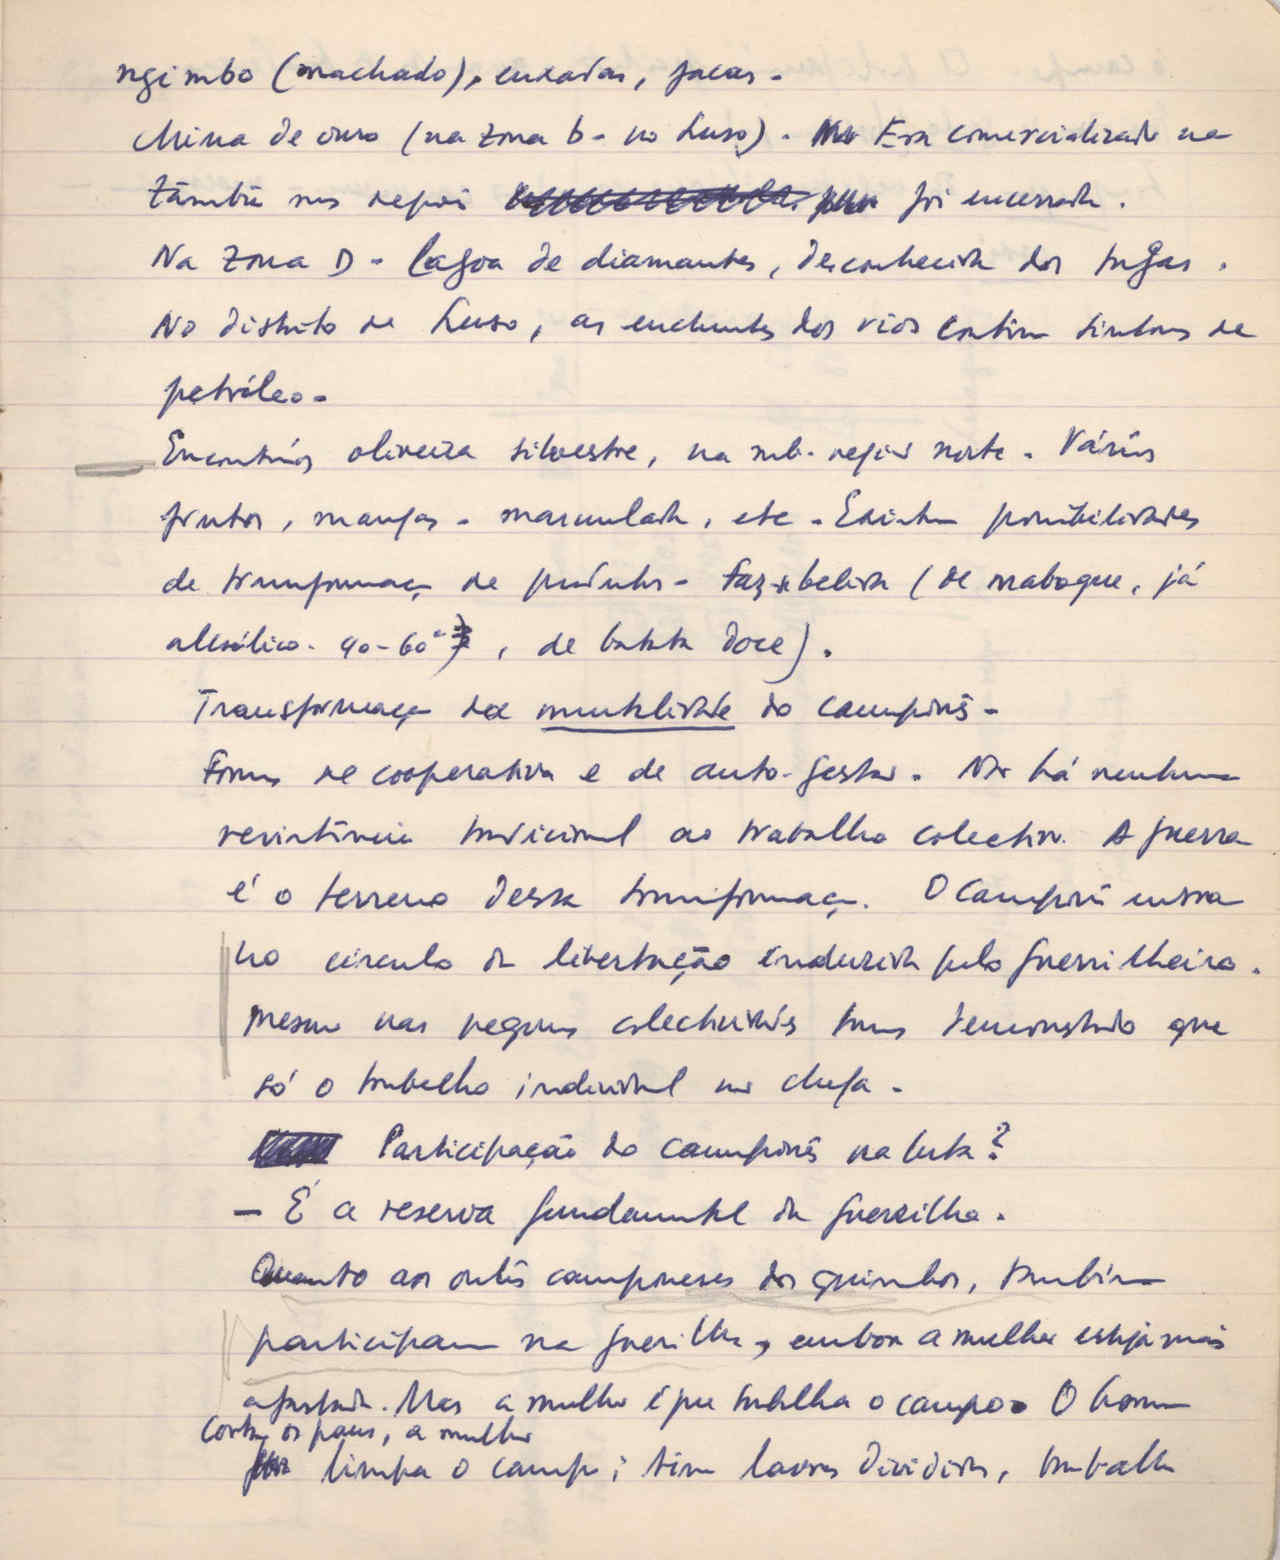 ngimbo (machado), enxadas, facas.
Mina de ouro (na zona b - no Luso). Era comercializado na
também mas depois foi encerrada.
Na zona D - lagoa de diamantes, desconhecida dos tugas.
No distrito de Luso, as enchentes dos rios contém sintomas de
petróleo.
Encontrámos oliveira silvestre, na sub-região norte. Vários
frutos, mangas - marmelada, etc. Existem possibilidades
de transformação de produtos - Faz-se bebida (de maboque, já
alcoólico. 40-60°, de batata doce).
Transformação da mentalidade do camponês.
Forma de cooperativa e de auto-gestão. Não há nenhuma
resistência tradicional ao trabalho colectivo. A guerra
é o terreno dessa transformação. O camponês entra
no círculo da libertação induzida pelo guerrilheiro.
Mesmo nas pequenas colectividades temos demonstrado que
só o trabalho individual não chega.
Participação do camponês na luta?
- É a reserva fundamental da guerrilha.
Quanto aos outros camponeses dos quimbos, também
participam na guerrilha, embora a mulher esteja mais
afastada. Mas a mulher é que trabalha o campo. O homem
corta os paus, a mulher
limpa o campo; têm lavras divididas, trabalha